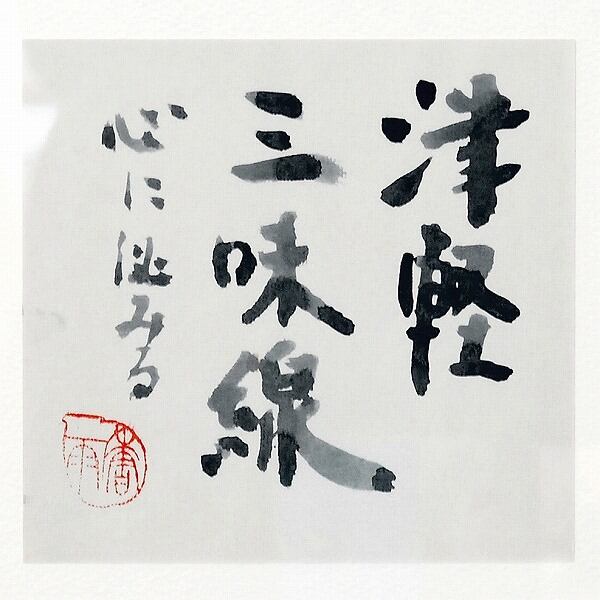 津軽
三味線
心に泌みる